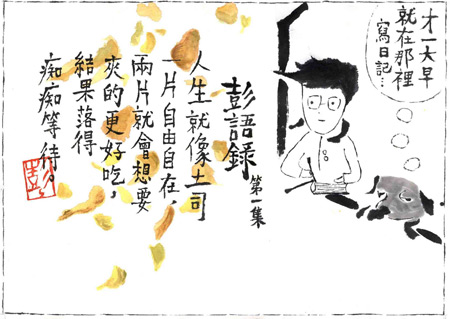 才一大早
就在那裡
寫日記…
彭語錄
第一集
人生就像土司
一片自由自在，
兩片就會想要
夾的更好吃，
結果落得
痴痴等待。